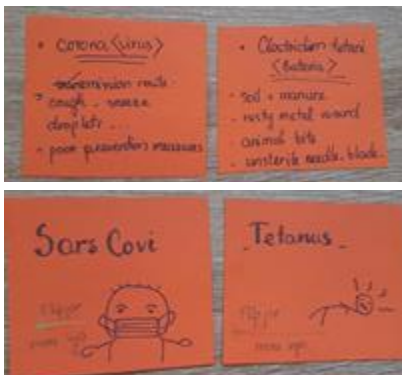 • Corona <virus>
transmission route
cough - sneeze
droplets ...
- poor prevention measures
• Clostridium tetani
<Bateria>
- soil + manure
- rusty metal wound
animal bite
- unsterile needle. blade.
Sars Cov1
Tetanus